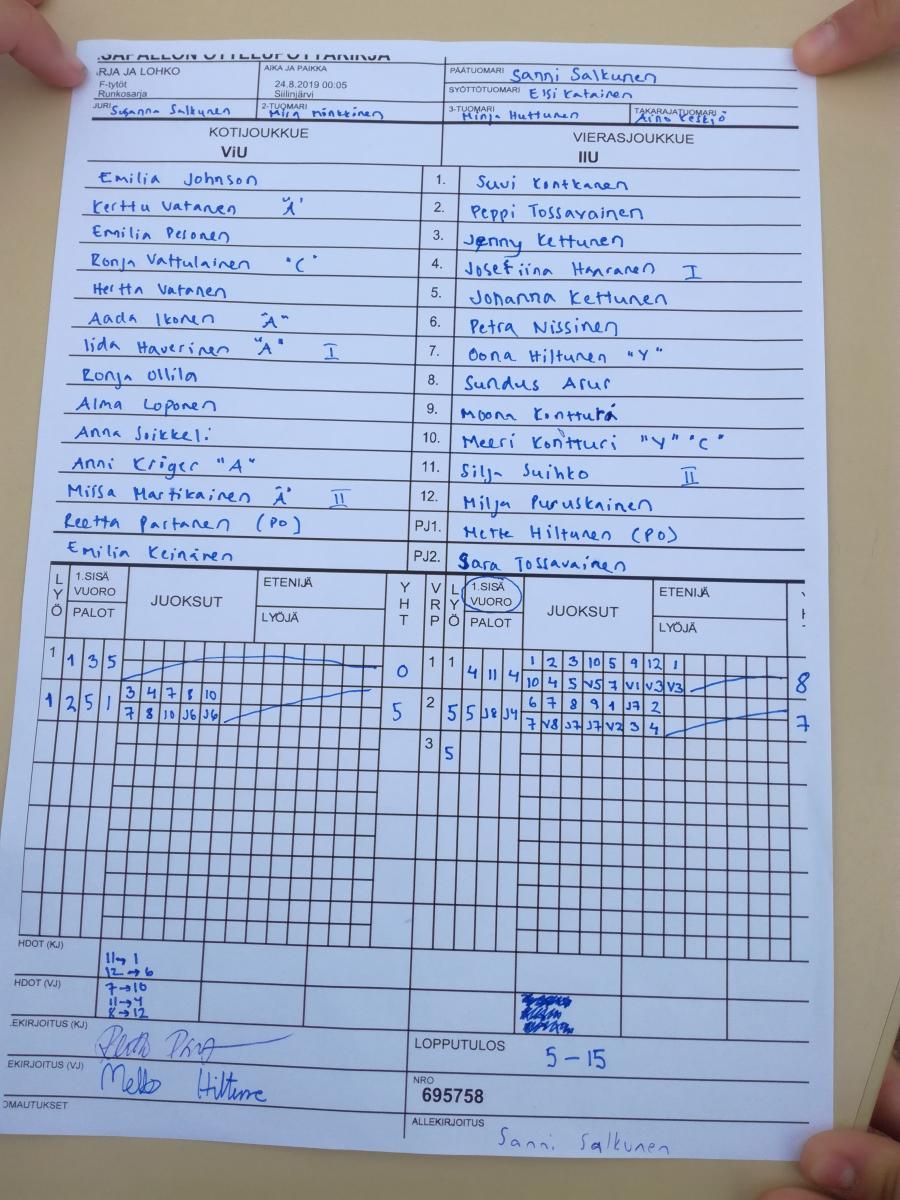 ARJA JA LOHKO
F-tytöt
Runkosarja
AIKA JA PAIKKA
24.8.2019 00:05
Siilinjärvi
PÄÄTUOMARI Sanni Salkunen
SYÖTTÖTUOMARI Elsi Katainen
JURI Susanna Salkunen
2-TUOMARI Miia Minkkinen
3-TUOMARI Minja Huttunen
TAKARAJATUOMARI Aino
KOTIJOUKKUE
ViU
VIERASJOUKKUE
IIU
Emilia Johnson 1. Suvi Kontkanen
Kerttu Vatanen "A" 2. Peppi Tossavainen
Emilia Pesonen 3. Jenny Kettunen
Ronja Vattulainen "C" 4. Josefiina Haaranen I
Hertta Vatanen 5. Johanna Kettunen
Aada Ikonen "A" 6. Petra Nissinen
Iida Haverinen "A" I 7. Oona Hiltunen "Y"
Ronja Ollila 8. Sundus Arur
Alma Loponen 9. Moona
Anna Soikkeli 10. Meeri Kontturi "Y" "C"
Anni Kriger "A" 11. Silja Suihko II
Miisa Martikainen "A" II 12. Milja Puruskainen
Reetta Partanen (PO) PJ1. Mette Hiltunen (PO)
Emilia Keinänen PJ2. Sara Tossavainen
LYÖ 1.SISÄ VUORO PALOT JUOKSUT ETENIJÄ LYÖJÄ YHT VRP LYÖ 1.SISÄ VUORO PALOT JUOKSUT ETENIJÄ LYÖJÄ
1 1 3 5 0 1 1 4 11 4 1 2 3 10 5 9 12 1 8
10 4 5 V5 7 V1 V3 V3
1 2 5 1 3 4 7 8 10 5 2 5 5 J8 J4 6 7 8 9 1 J7 2 7
7 8 10 J6 J6 7 V8 J7 J7 V2 3 4
3 5
HDOT (KJ)
11→1
12→6
HDOT (VJ)
7→10
11→4
8→12
EKIRJOITUS (KJ)
EKIRJOITUS (VJ)
OMAUTUKSET
LOPPUTULOS 5-15
NRO
695758
ALLEKIRJOITUS
Sanni Salkunen